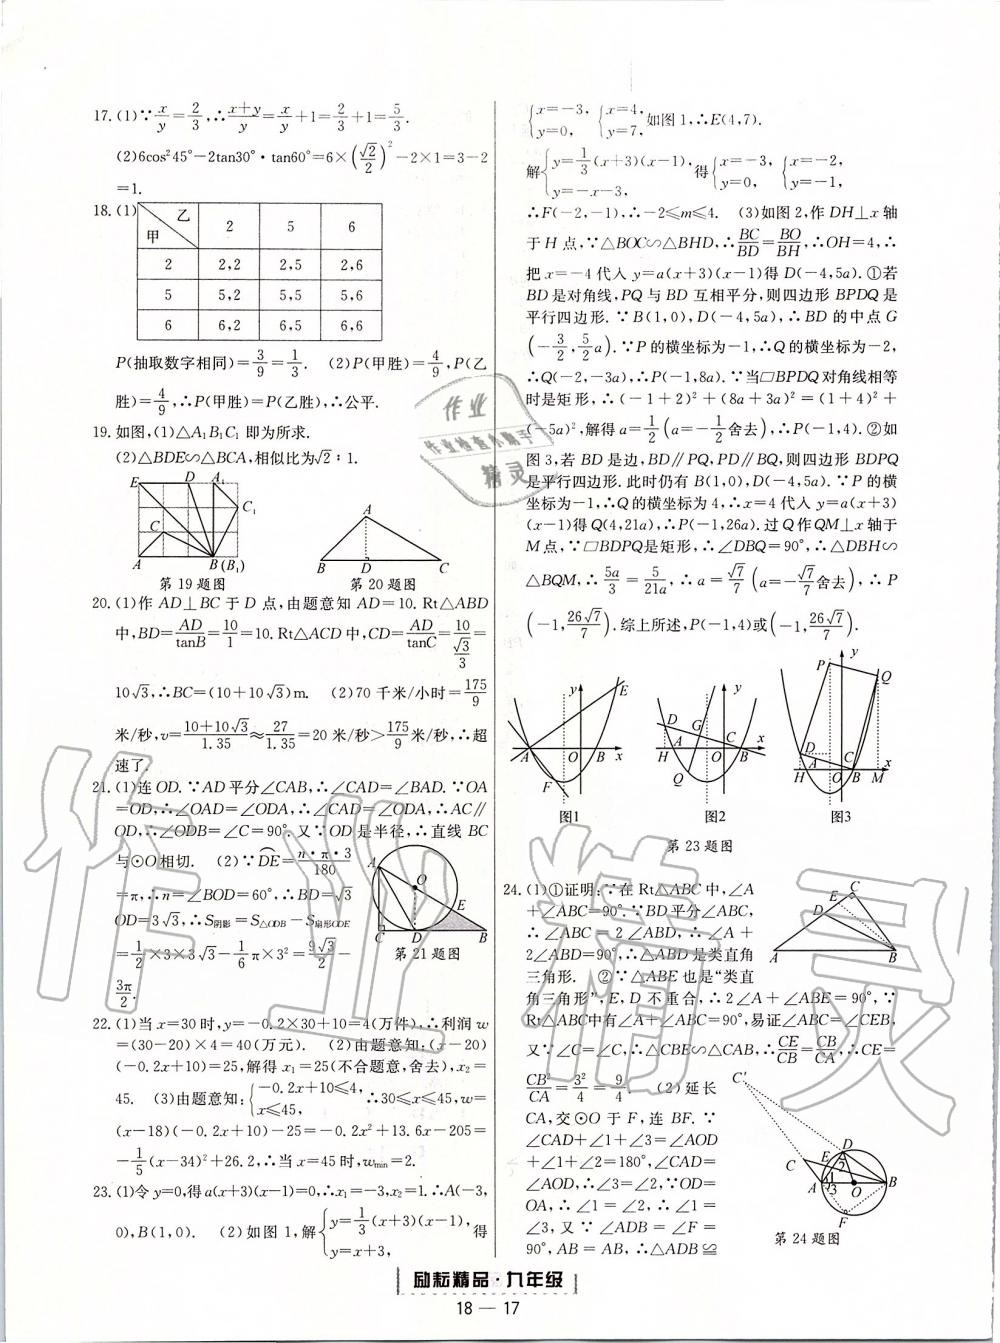 17.(1)∵x/y=2/3,∴(x+y)/y=x/y+1=2/3+1=5/3.
(2)6cos²45°-2tan30°·tan60°=6×(√2/2)²-2×1=3-2
=1.
18.(1)
乙 2 5 6
甲
2 2,2 2,5 2,6
5 5,2 5,5 5,6
6 6,2 6,5 6,6
P(抽取数字相同)=3/9=1/3. (2)P(甲胜)=4/9,P(乙
胜)=4/9,∴P(甲胜)=P(乙胜),∴公平.
19.如图,(1)△A₁B₁C₁ 即为所求.
(2)△BDE∽△BCA,相似比为√2∶1.
E D A₁
C C₁
A B(B₁)
第19题图
A
B D C
第20题图
20.(1)作 AD⊥BC 于 D 点,由题意知 AD=10. Rt△ABD
中,BD=AD/tanB=10/1=10. Rt△ACD 中,CD=AD/tanC=10/(√3/3)=
10√3,∴BC=(10+10√3)m. (2)70 千米/小时=175/9
米/秒,v=(10+10√3)/1.35≈27/1.35=20 米/秒>175/9米/秒,∴超
速了.
21.(1)连 OD.∵AD 平分∠CAB,∴∠CAD=∠BAD.∵OA
=OD,∴∠OAD=∠ODA,∴∠CAD=∠ODA,∴AC∥
OD,∴∠ODB=∠C=90°.又∵OD 是半径,∴直线 BC
与⊙O 相切. (2)∵DE⌒=n·π·3/180
=π,∴n=∠BOD=60°,∴BD=√3
OD=3√3,∴S阴影=S△ODB-S扇形ODE
=1/2×3×3√3-1/6π×3²=9√3/2-
3π/2.
A
O
E
C D B
第21题图
22.(1)当 x=30 时,y=-0.2×30+10=4(万件),∴利润 w
=(30-20)×4=40(万元). (2)由题意知:(x-20)
(-0.2x+10)=25,解得 x₁=25(不合题意,舍去),x₂=
45. (3)由题意知:{-0.2x+10≤4, x≤45, ∴30≤x≤45,w=
(x-18)(-0.2x+10)-25=-0.2x²+13.6x-205=
-1/5(x-34)²+26.2,∴当 x=45 时,wmin=2.
23.(1)令 y=0,得 a(x+3)(x-1)=0,∴x₁=-3,x₂=1.∴A(-3,
0),B(1,0). (2)如图 1,解{y=1/3(x+3)(x-1), y=x+3, 得
{x=-3, y=0, {x=4, y=7, 如图 1,∴E(4,7).
解{y=1/3(x+3)(x-1), y=-x-3, 得{x=-3, y=0, {x=-2, y=-1,
∴F(-2,-1),∴-2≤m≤4. (3)如图 2,作 DH⊥x 轴
于 H 点,∵△BOC∽△BHD,∴BC/BD=BO/BH,∴OH=4,∴
把 x=-4 代入 y=a(x+3)(x-1)得 D(-4,5a).①若
BD 是对角线,PQ 与 BD 互相平分,则四边形 BPDQ 是
平行四边形.∵B(1,0),D(-4,5a),∴BD 的中点 G
(-3/2,5/2a).∵P 的横坐标为-1,∴Q 的横坐标为-2,
∴Q(-2,-3a),∴P(-1,8a).∵当▱BPDQ 对角线相等
时是矩形,∴(-1+2)²+(8a+3a)²=(1+4)²+
(-5a)²,解得 a=1/2(a=-1/2舍去),∴P(-1,4).②如
图 3,若 BD 是边,BD∥PQ,PD∥BQ,则四边形 BDPQ
是平行四边形.此时仍有 B(1,0),D(-4,5a).∵P 的横
坐标为-1,∴Q 的横坐标为 4,∴x=4 代入 y=a(x+3)
(x-1)得 Q(4,21a),∴P(-1,26a).过 Q 作 QM⊥x 轴于
M 点,∵▱BDPQ 是矩形,∴∠DBQ=90°,∴△DBH∽
△BQM,∴5a/3=5/21a,∴a=√7/7(a=-√7/7舍去),∴P
(-1,26√7/7).综上所述,P(-1,4)或(-1,26√7/7).
y E
A O B x
F
图1
D G y
H A C O B x
Q
图2
P y Q
D C
H A O B M x
图3
第23题图
24.(1)①证明:∵在 Rt△ABC 中,∠A
+∠ABC=90°.∵BD 平分∠ABC,
∴∠ABC=2∠ABD,∴∠A+
2∠ABD=90°,∴△ABD 是类直角
三角形. ②∵△ABE 也是“类直
角三角形”,E,D 不重合,∴2∠A+∠ABE=90°,∵
Rt△ABC中有∠A+∠ABC=90°,易证∠ABC=∠CEB,
又∵∠C=∠C,∴△CBE∽△CAB,∴CE/CB=CB/CA,∴CE=
CB²/CA=3²/4=9/4. (2)延长
CA,交⊙O 于 F,连 BF.∵
∠CAD+∠1+∠3=∠AOD
+∠1+∠2=180°,∠CAD=
∠AOD,∴∠3=∠2,∵OD=
OA,∴∠1=∠2,∴∠1=
∠3,又∵∠ADB=∠F=
90°,AB=AB,∴△ADB≌
C
E
D
A B
C′
D
E 2
C
A 1 3 O B
F
第24题图
励耘精品·九年级
18 — 17
作业
作业检查小助手
精灵
作业精灵